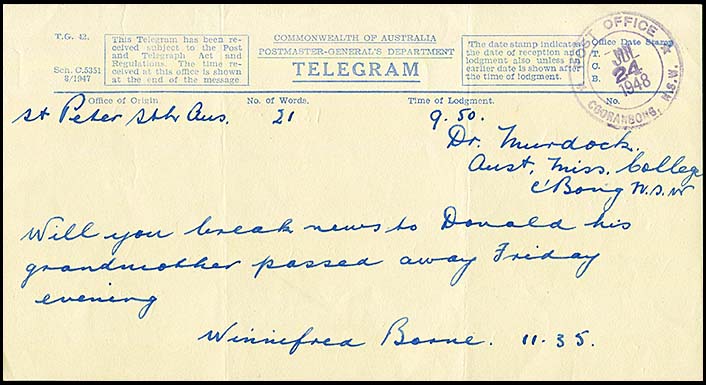 T.G. 42.
Sch. C.5351
8/1947
This Telegram has been re-
ceived subject to the Post
and Telegraph Act and
Regulations. The time re-
ceived at this office is shown
at the end of the message
COMMONWEALTH OF AUSTRALIA
POSTMASTER-GENERAL'S DEPARTMENT
TELEGRAM
The date stamp indicates
the date of reception and
lodgment also unless an
earlier date is shown after
the time of lodgment.
Office Date Stamp
T.
C.
B.
POST OFFICE
JUL
24
1948
COORANBONG, N.S.W.
Office of Origin. No. of Words. Time of Lodgment. No.
St Peter Sth Aus. 21 9.50.
Dr. Murdock.
Aust. Miss. College
C'Bong N.S.W
Will you break news to Donald his
grandmother passed away Friday
evening
Winnifred Borne. 11.35.